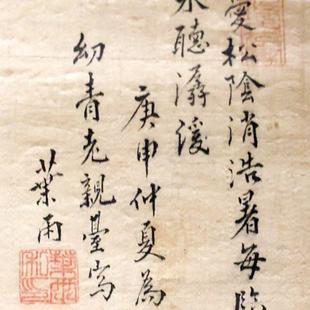 愛松陰消浩暑每臨
水聽潺湲
庚申仲夏為
幼青老親臺寫
葉雨